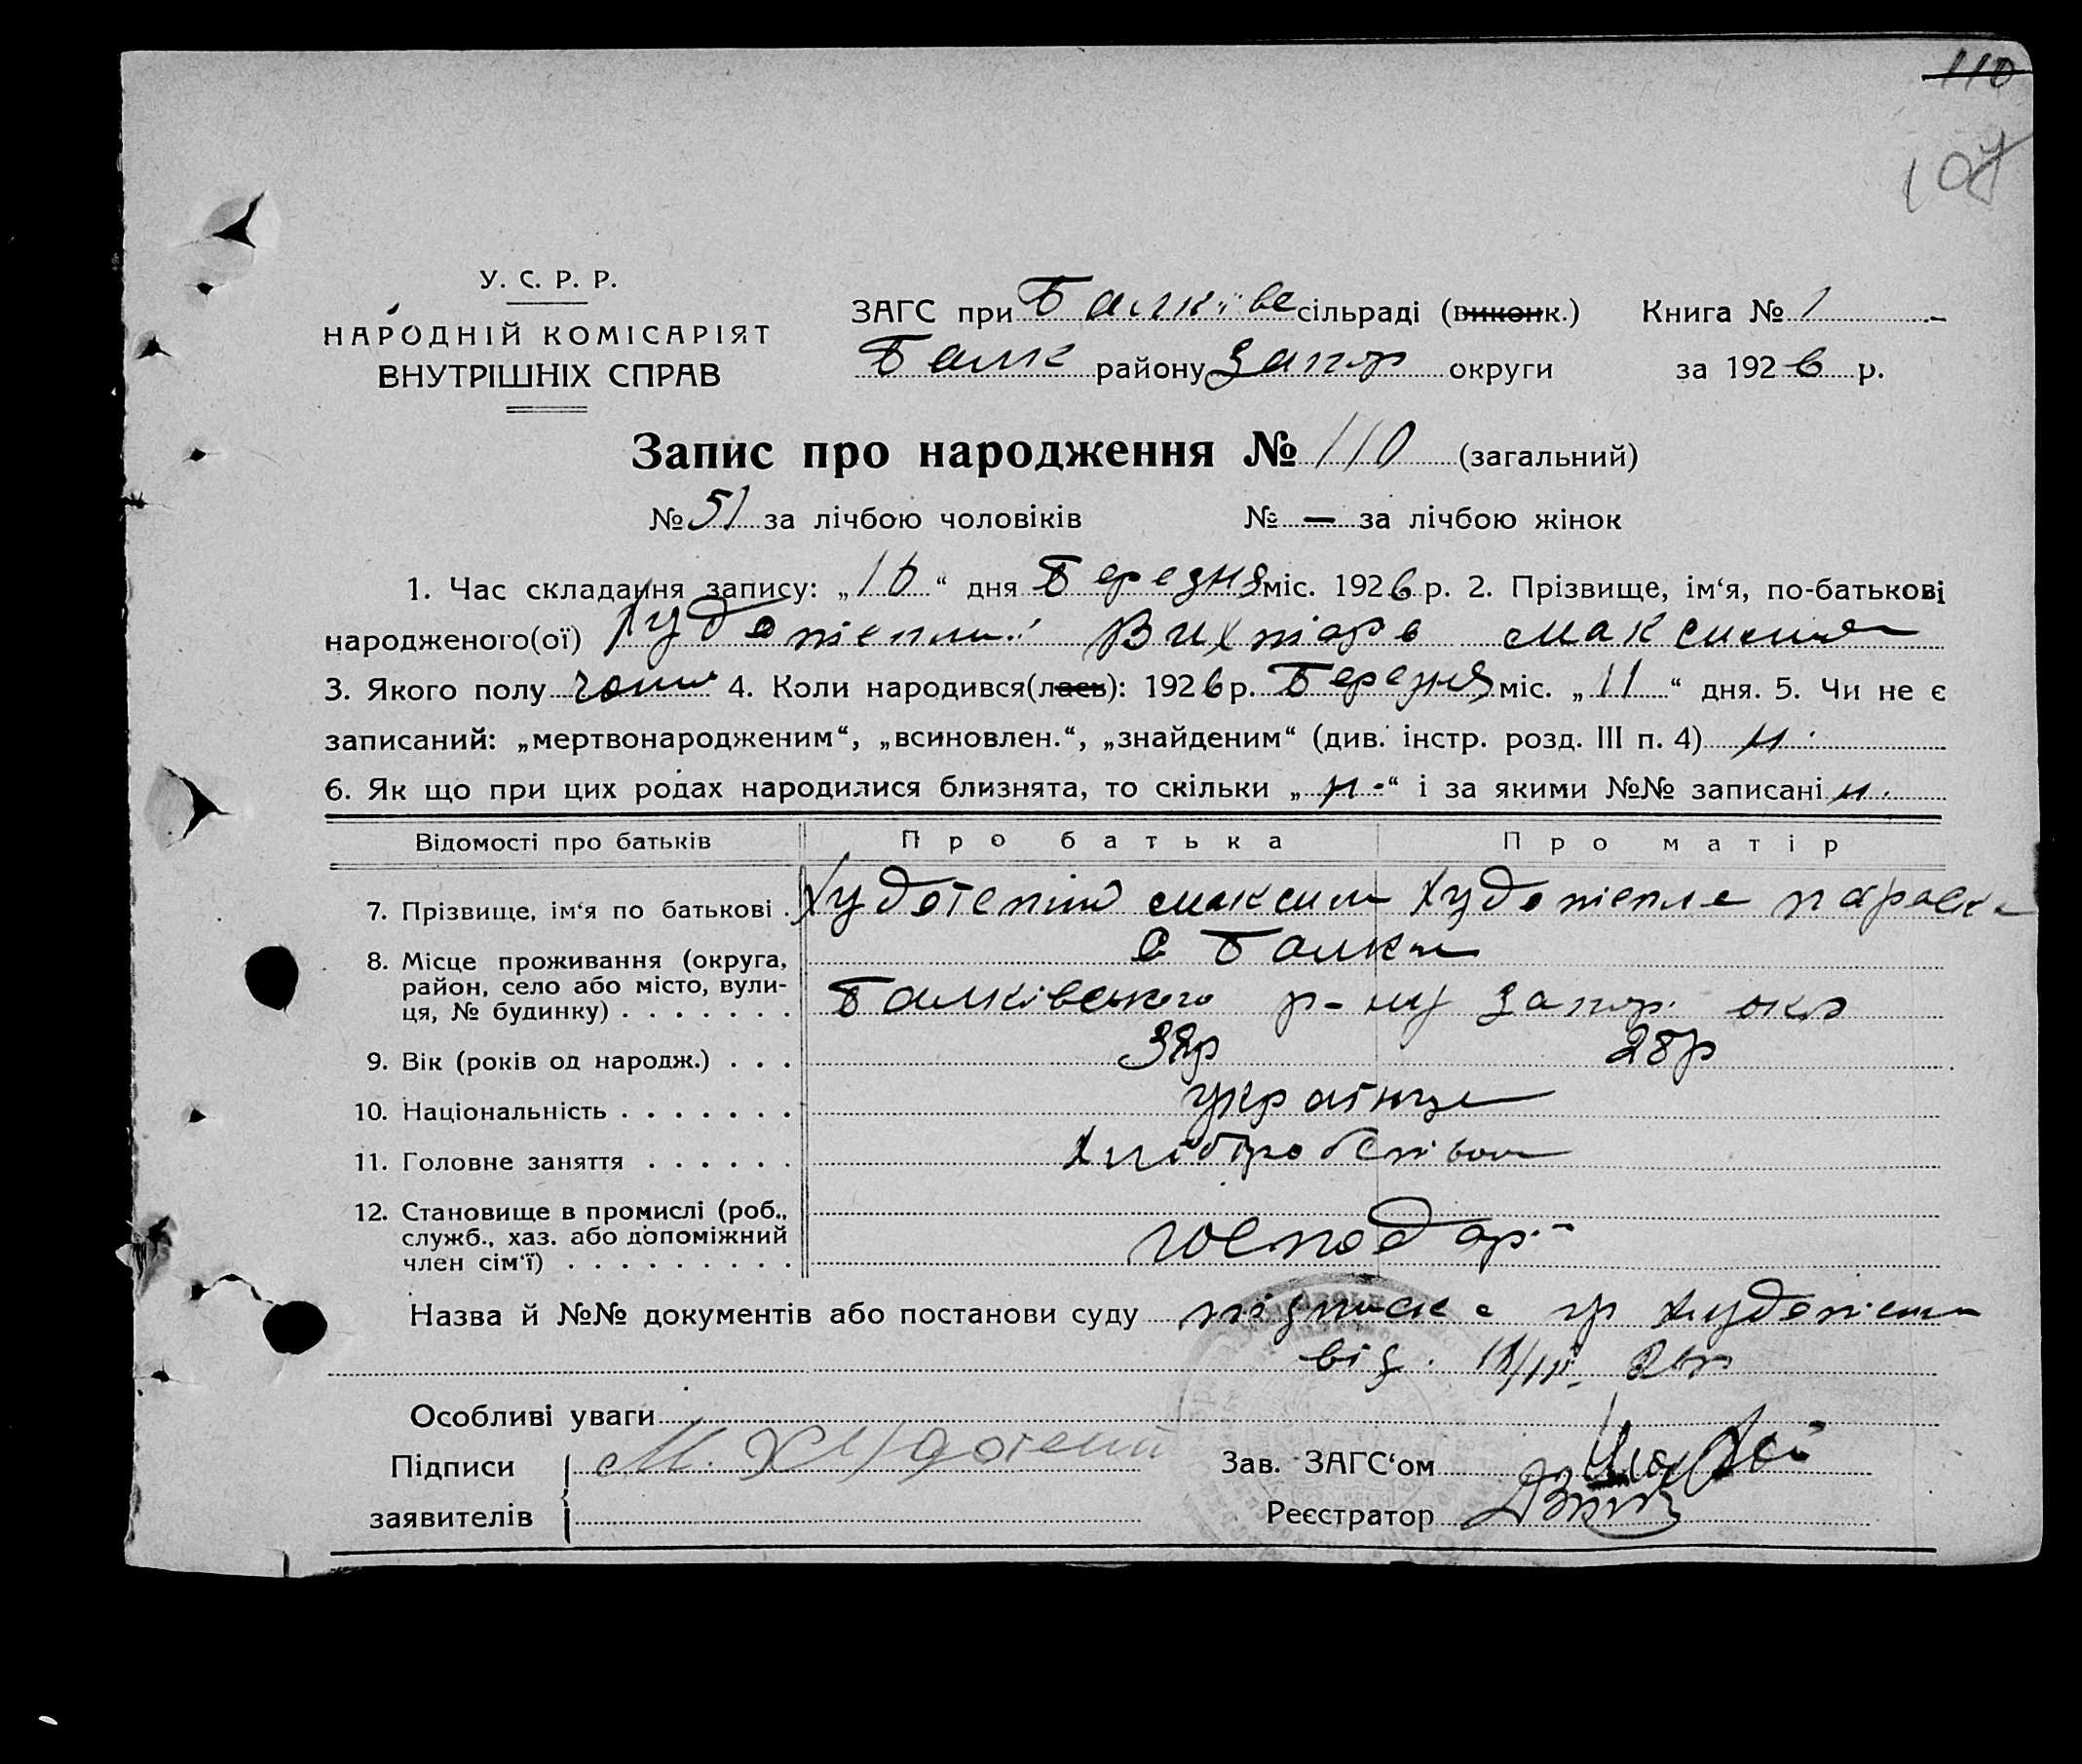 110
107
У. С. Р. Р.
НАРОДНІЙ КОМІСАРІЯТ
ВНУТРІШНІХ СПРАВ
ЗАГС при Балківс сільраді (виконк.) Книга № 1
Балк району Запор округи за 1926 р.
Запис про народження № 110 (загальний)
№ 51 за лічбою чоловіків № — за лічбою жінок
1. Час складання запису: „16“ дня Березня міс. 1926 р. 2. Прізвище, ім‘я, по-батькові
народженого(ої) Худотеплий Вихтор Максим
3. Якого полу чолов 4. Коли народився(лась): 1926 р. Березня міс. „11“ дня. 5. Чи не є
записаний: „мертвонародженим“, „всиновлен.“, „знайденим“ (див. інстр. розд. III п. 4) н.
6. Як що при цих родах народилися близнята, то скільки „н.“ і за якими №№ записані н.
Відомості про батьків Про батька Про матір
7. Прізвище, ім‘я по батькові . Худотеплий Максим Худотепла Параска
8. Місце проживання (округа, с Балки
район, село або місто, вули-
ця, № будинку) . . . . . . . Балківського р-ну Запор. окр
9. Вік (років од народж.) . . . 32р 28р
10. Національність . . . . . . . українці
11. Головне заняття . . . . . . хліборобство
12. Становище в промислі (роб.,
служб., хаз. або допоміжний господар.
член сім‘ї) . . . . . . . . .
Назва й №№ документів або постанови суду підписка гр Худотепл
від. 26р
Особливі уваги
Підписи М. Худотепли Зав. ЗАГС‘ом
заявителів Реєстратор